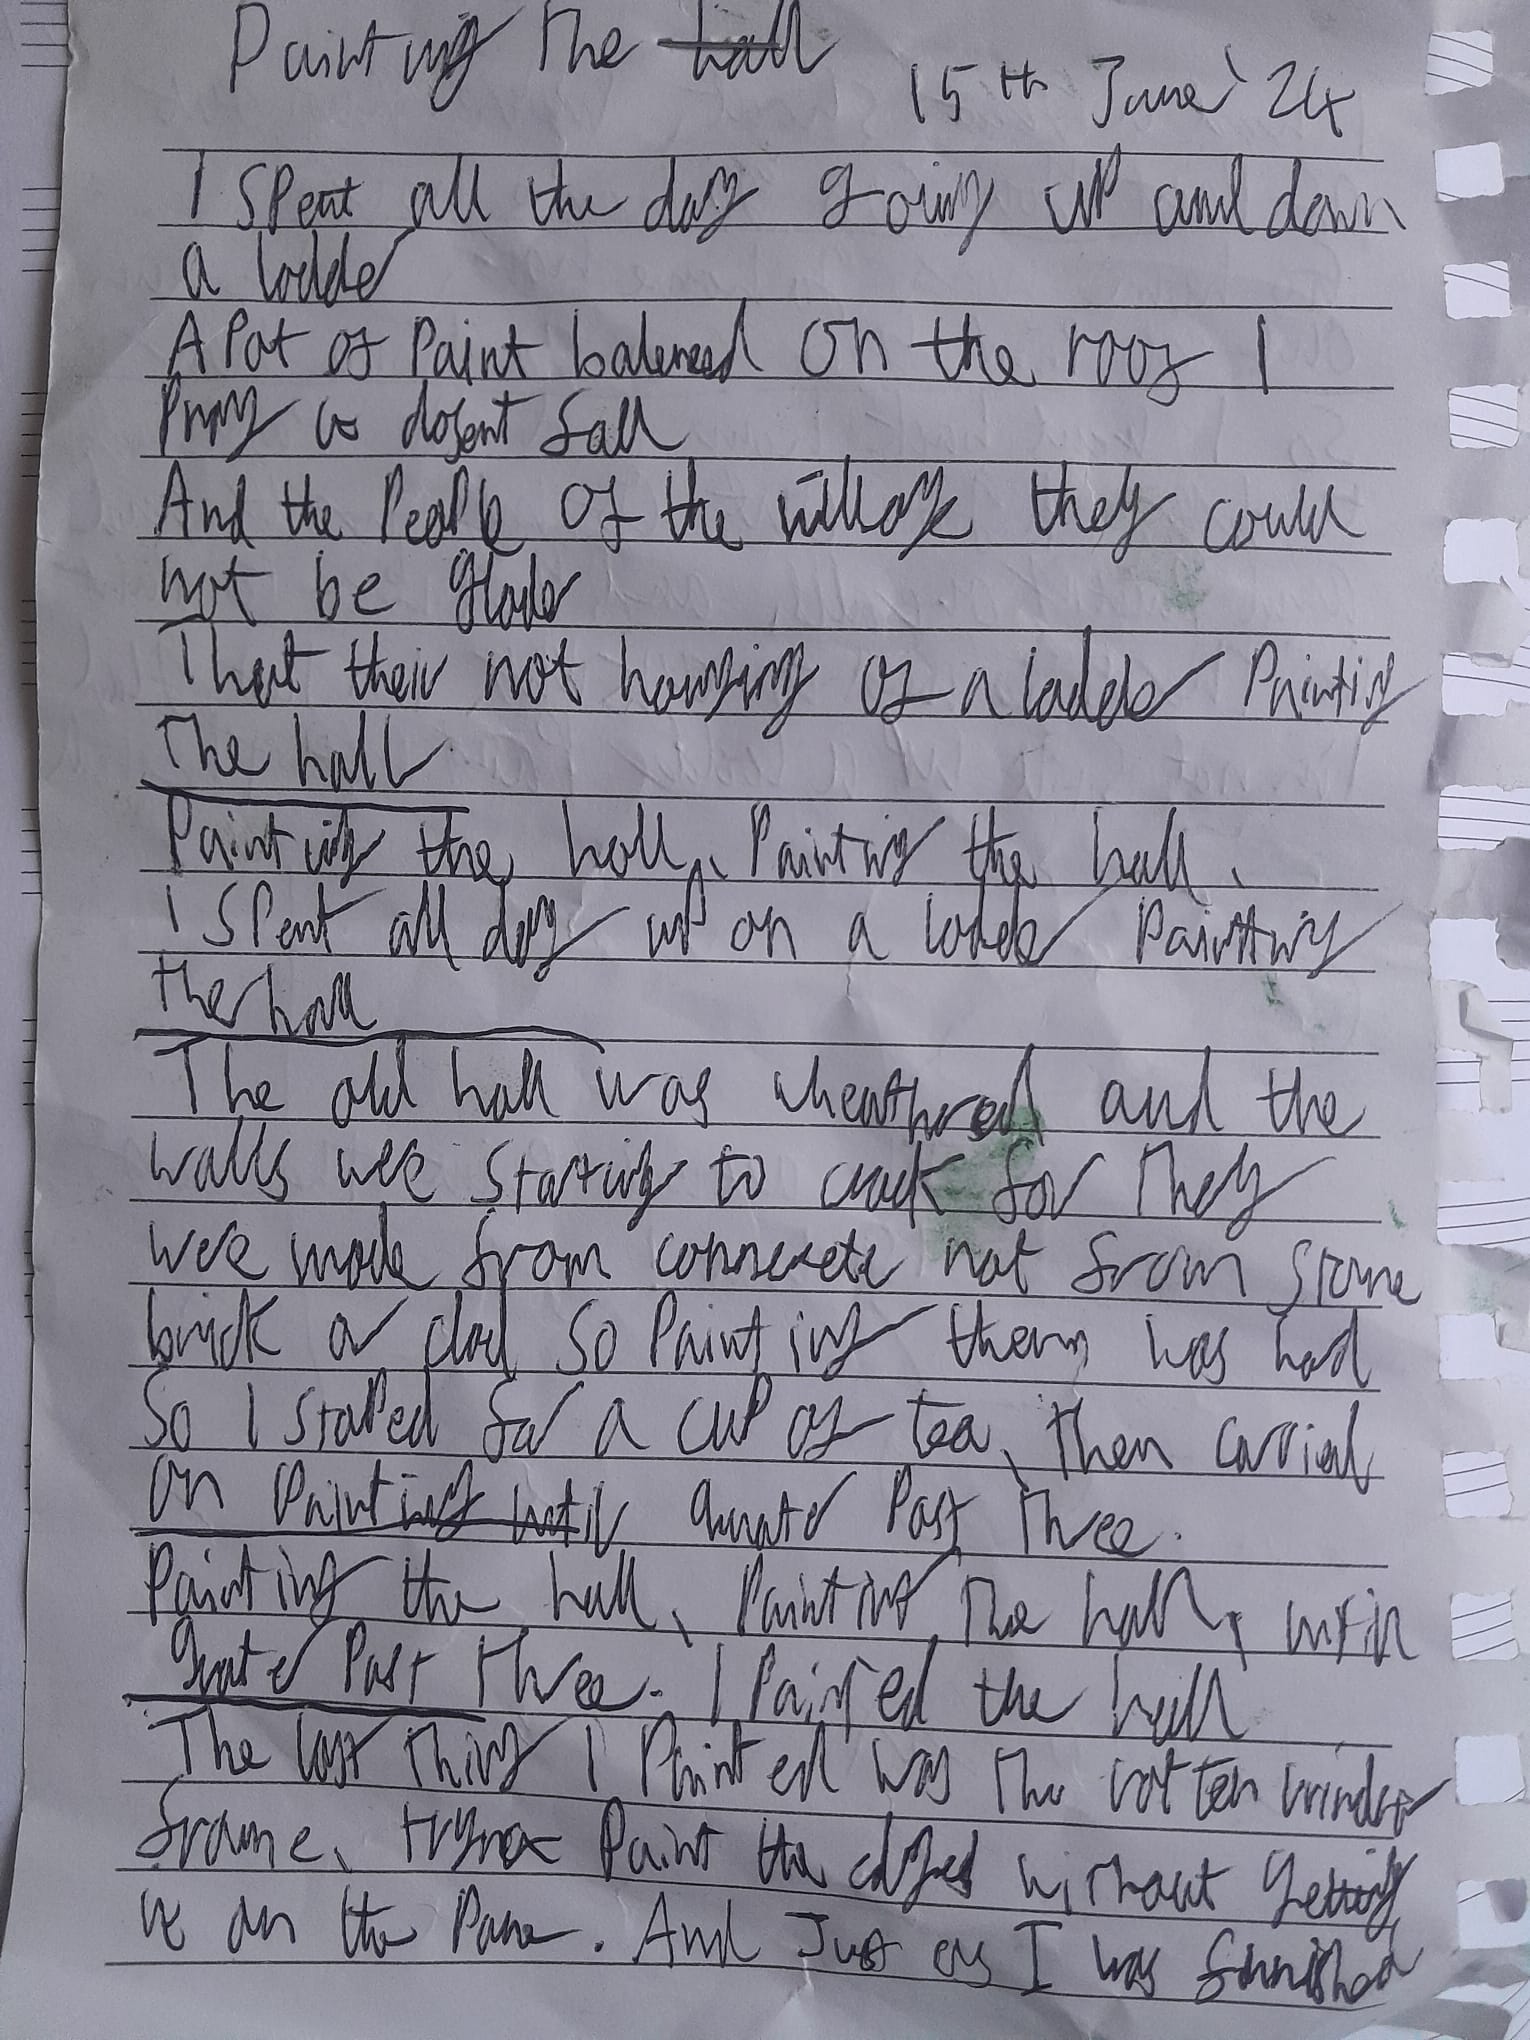 Painting The hall
15th June '24
I spent all the day going up and down
a ladder
A Pot of Paint balenced on the roof I
Pray it dosent fall
And the People of the village they could
not be glader
That their not hanging of a ladder Painting
The hall
Painting the hall, Painting the hall,
I spent all day up on a ladder Painting
the hall
The old hall was wheathered and the
walls were starting to crack for They
were made from conncrete not from stone
brick or clod so Painting them was hard
So I stoped for a cup of tea, then carried
on Painting until quarter Past Three.
Painting the hall, Painting The hall, until
quater Past Three. I Painted the hall
The last thing I Painted was The rotten window
frame, Paint the edges without getting
it on the Pane. And Just as I was finnished